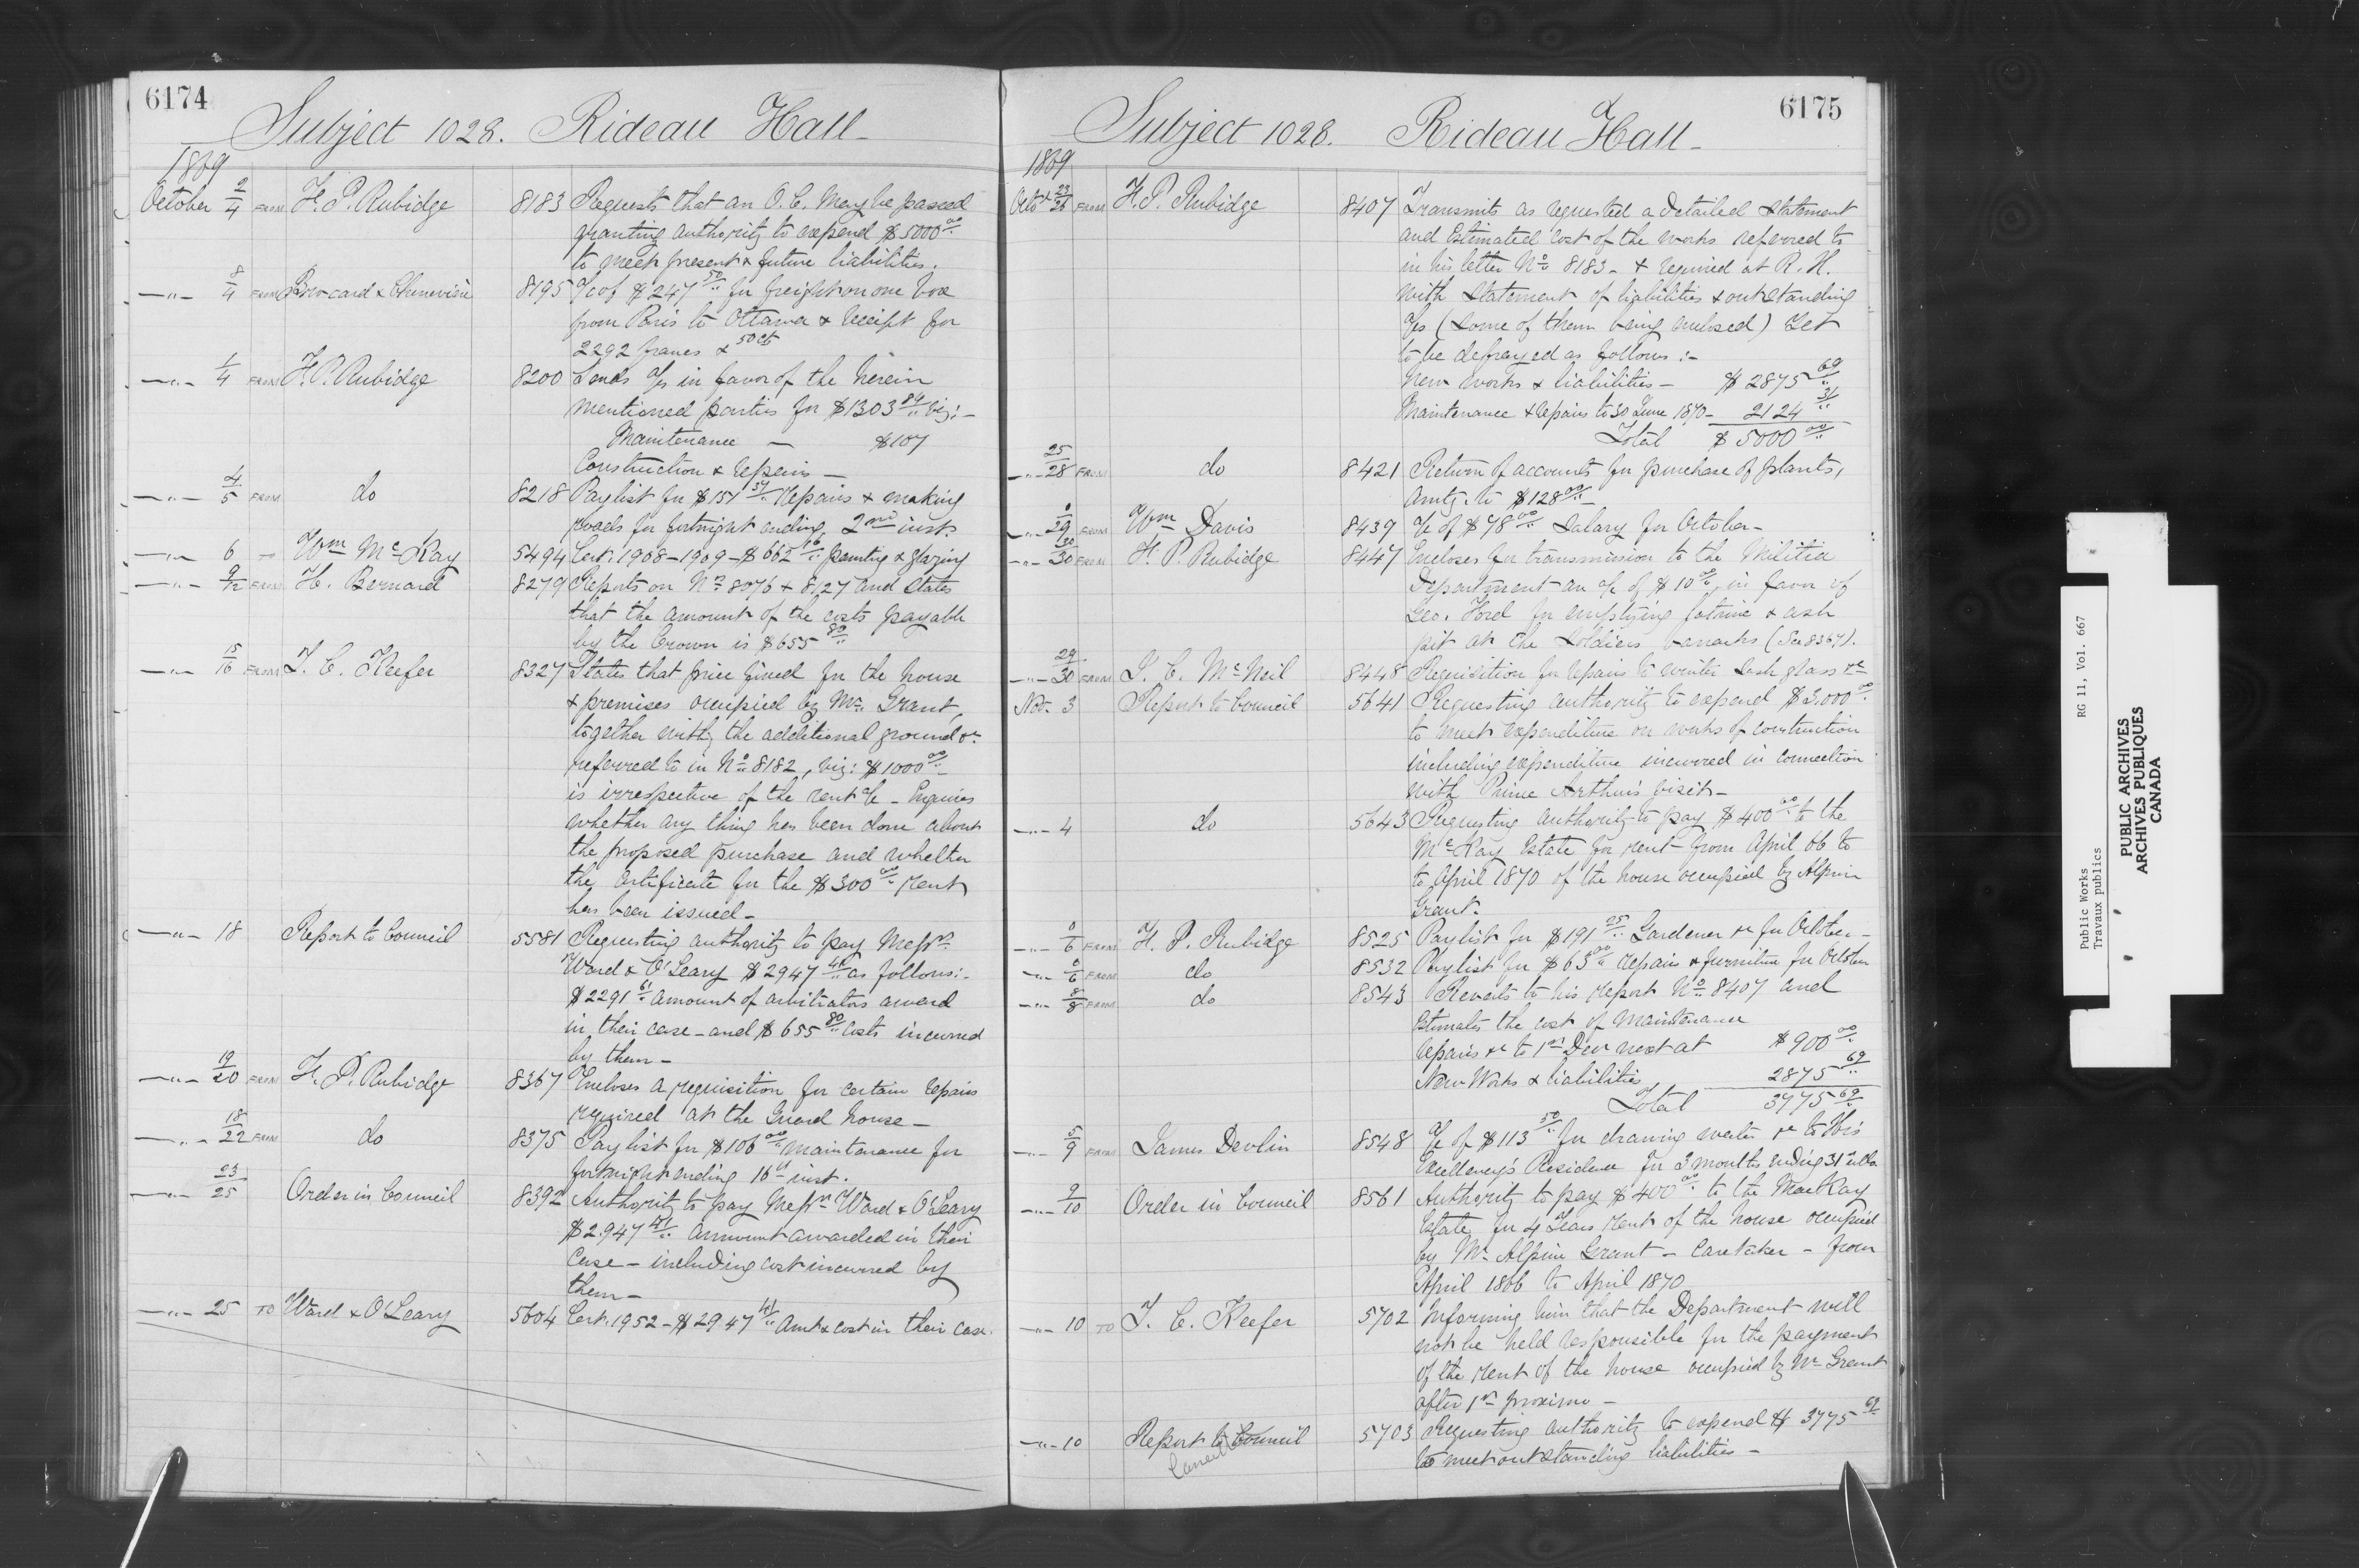 6174
Subject 1028. Rideau Hall-
1869
October 2/4 FROM F. P. Rubidge 8183 Requests that an O.C. may be passed
granting authority to expend $5000 00/..
to meet present & future liabilities.
—"— 8/4 FROM Brocard & 8195 a/c of $247 50/.. for freight on one box
from Paris to Ottawa & receipt for
2292 francs & 50 cts
—"— 1/4 FROM F. P. Rubidge 8200 Sends a/cs in favor of the herein
mentioned parties for $1303 84/.. viz:-
Maintenance — $107
Construction & repairs —
—"— 4/5 FROM do 8218 Pay list for $151 37/.. repairs & making
roads for fortnight ending 2nd inst.
—"— 6 — Wm McKay 5494 Cert. 1908-1909-$662 16/.. painting & glazing
—"— 9/12 FROM H. Bernard 8279 Reports on Nos 8076 & 8127 and states
that the amount of the costs payable
by the Crown is $655 80/..
—"— 15/16 FROM T. C. Keefer 8327 States that price fixed for the house
& premises occupied by Mr. Grant,
together with the additional ground &c
referred to in No 8182, viz: $1000 00/..
is irrespective of the rent a/c - Enquires
whether any thing has been done about
the proposed purchase and whether
the certificate for the $300 00/.. rent
has been issued-
—"— 18 Report to Council 5581 Requesting authority to pay Messrs
Ward & O'Leary $2947 41/.. as follows:-
$2291 61/.. amount of arbitrators award
in their case - and $655 80/.. costs incurred
by them-
—"— 19/20 FROM F. P. Rubidge 8367 Encloses a requisition for certain repairs
required at the Guard house-
—"— 18/22 FROM do 8375 Pay list for $106 00/.. maintenance for
fortnight ending 16th inst.
—"— 23/25 Order in Council 8392 Authority to pay Messrs Ward & O'Leary
$2.947 41/.. amount awarded in their
case - including cost incurred by
them-
—"— 25 TO Ward & O'Leary 5604 Cert. 1952-$2947 41/.. Amt & cost in their case.
6175
Subject 1028. Rideau Hall-
1869
Octo 23/26 FROM F. P. Rubidge 8407 Transmits as requested a detailed statement
and estimated cost of the works referred to
in his letter No 8183- & required at R. H.
with statement of liabilities & outstanding
a/cs (some of them being enclosed) yet
to be defrayed as follows:-
New works & liabilities - $2875 69/..
Maintenance & repairs to 30 June 1870- 2124 31/..
Total $5000 00/..
—"— 25/28 FROM do 8421 Return of accounts for purchase of plants,
amtg. to $128 00/..
—"— 0/29 FROM Wm Davis 8439 a/c of $78 00/.. salary for October-
—"— 30/30 FROM F. P. Rubidge 8447 Encloses for transmission to the Militia
Department an a/c of $10 00/.. in favor of
Geo. Ford for emptying latrine & ash
pit at the soldiers barracks (See 8367).
—"— 29/30 FROM J. C. McNeil 8448 Requisition for repairs to winter sash glass &c
Nov. 3 Report to Council 5641 Requesting authority to expend $3.000 00/..
to meet expenditure on works of construction
including expenditure incurred in connection
with Prince Arthur's visit-
—"— 4 do 5643 Requesting authority to pay $400 00/.. to the
McKay Estate for rent from April 66 to
to April 1870 of the house occupied by Alpin
Grant.
—"— 0/6 FROM F. P. Rubidge 8525 Pay list for $191 25/.. Gardener &c for October-
—"— 0/6 FROM do 8532 Pay list for $63 00/.. repairs & furniture for October
—"— 8/8 FROM do 8543 Reverts to his report No 8407 and
estimates the cost of maintenance
repairs &c to 1st Decr next at $900 00/..
New Works & liabilities 2875 69/..
Total 3775 69/..
—"— 5/9 FROM James Devlin 8548 a/c of $113 50/.. for drawing water &c to His
Excellency's Residence for 3 months ending 31 ulto
—"— 9/10 Order in Council 8561 Authority to pay $400 00/.. to the MacKay
Estate for 4 years rent of the house occupied
by Mr Alpin Grant - Caretaker - from
April 1866 to April 1870
—"— 10 TO T. C. Keefer 5702 Informing him that the Department will
not be held responsible for the payment
of the rent of the house occupied by Mr Grant
after 1st proximo-
—"— 10 Report to Council 5703 Requesting authority to expend $3775 69/..
to meet outstanding liabilities-
Public Works
Travaux publics
RG 11, Vol. 667
PUBLIC ARCHIVES
ARCHIVES PUBLIQUES
CANADA